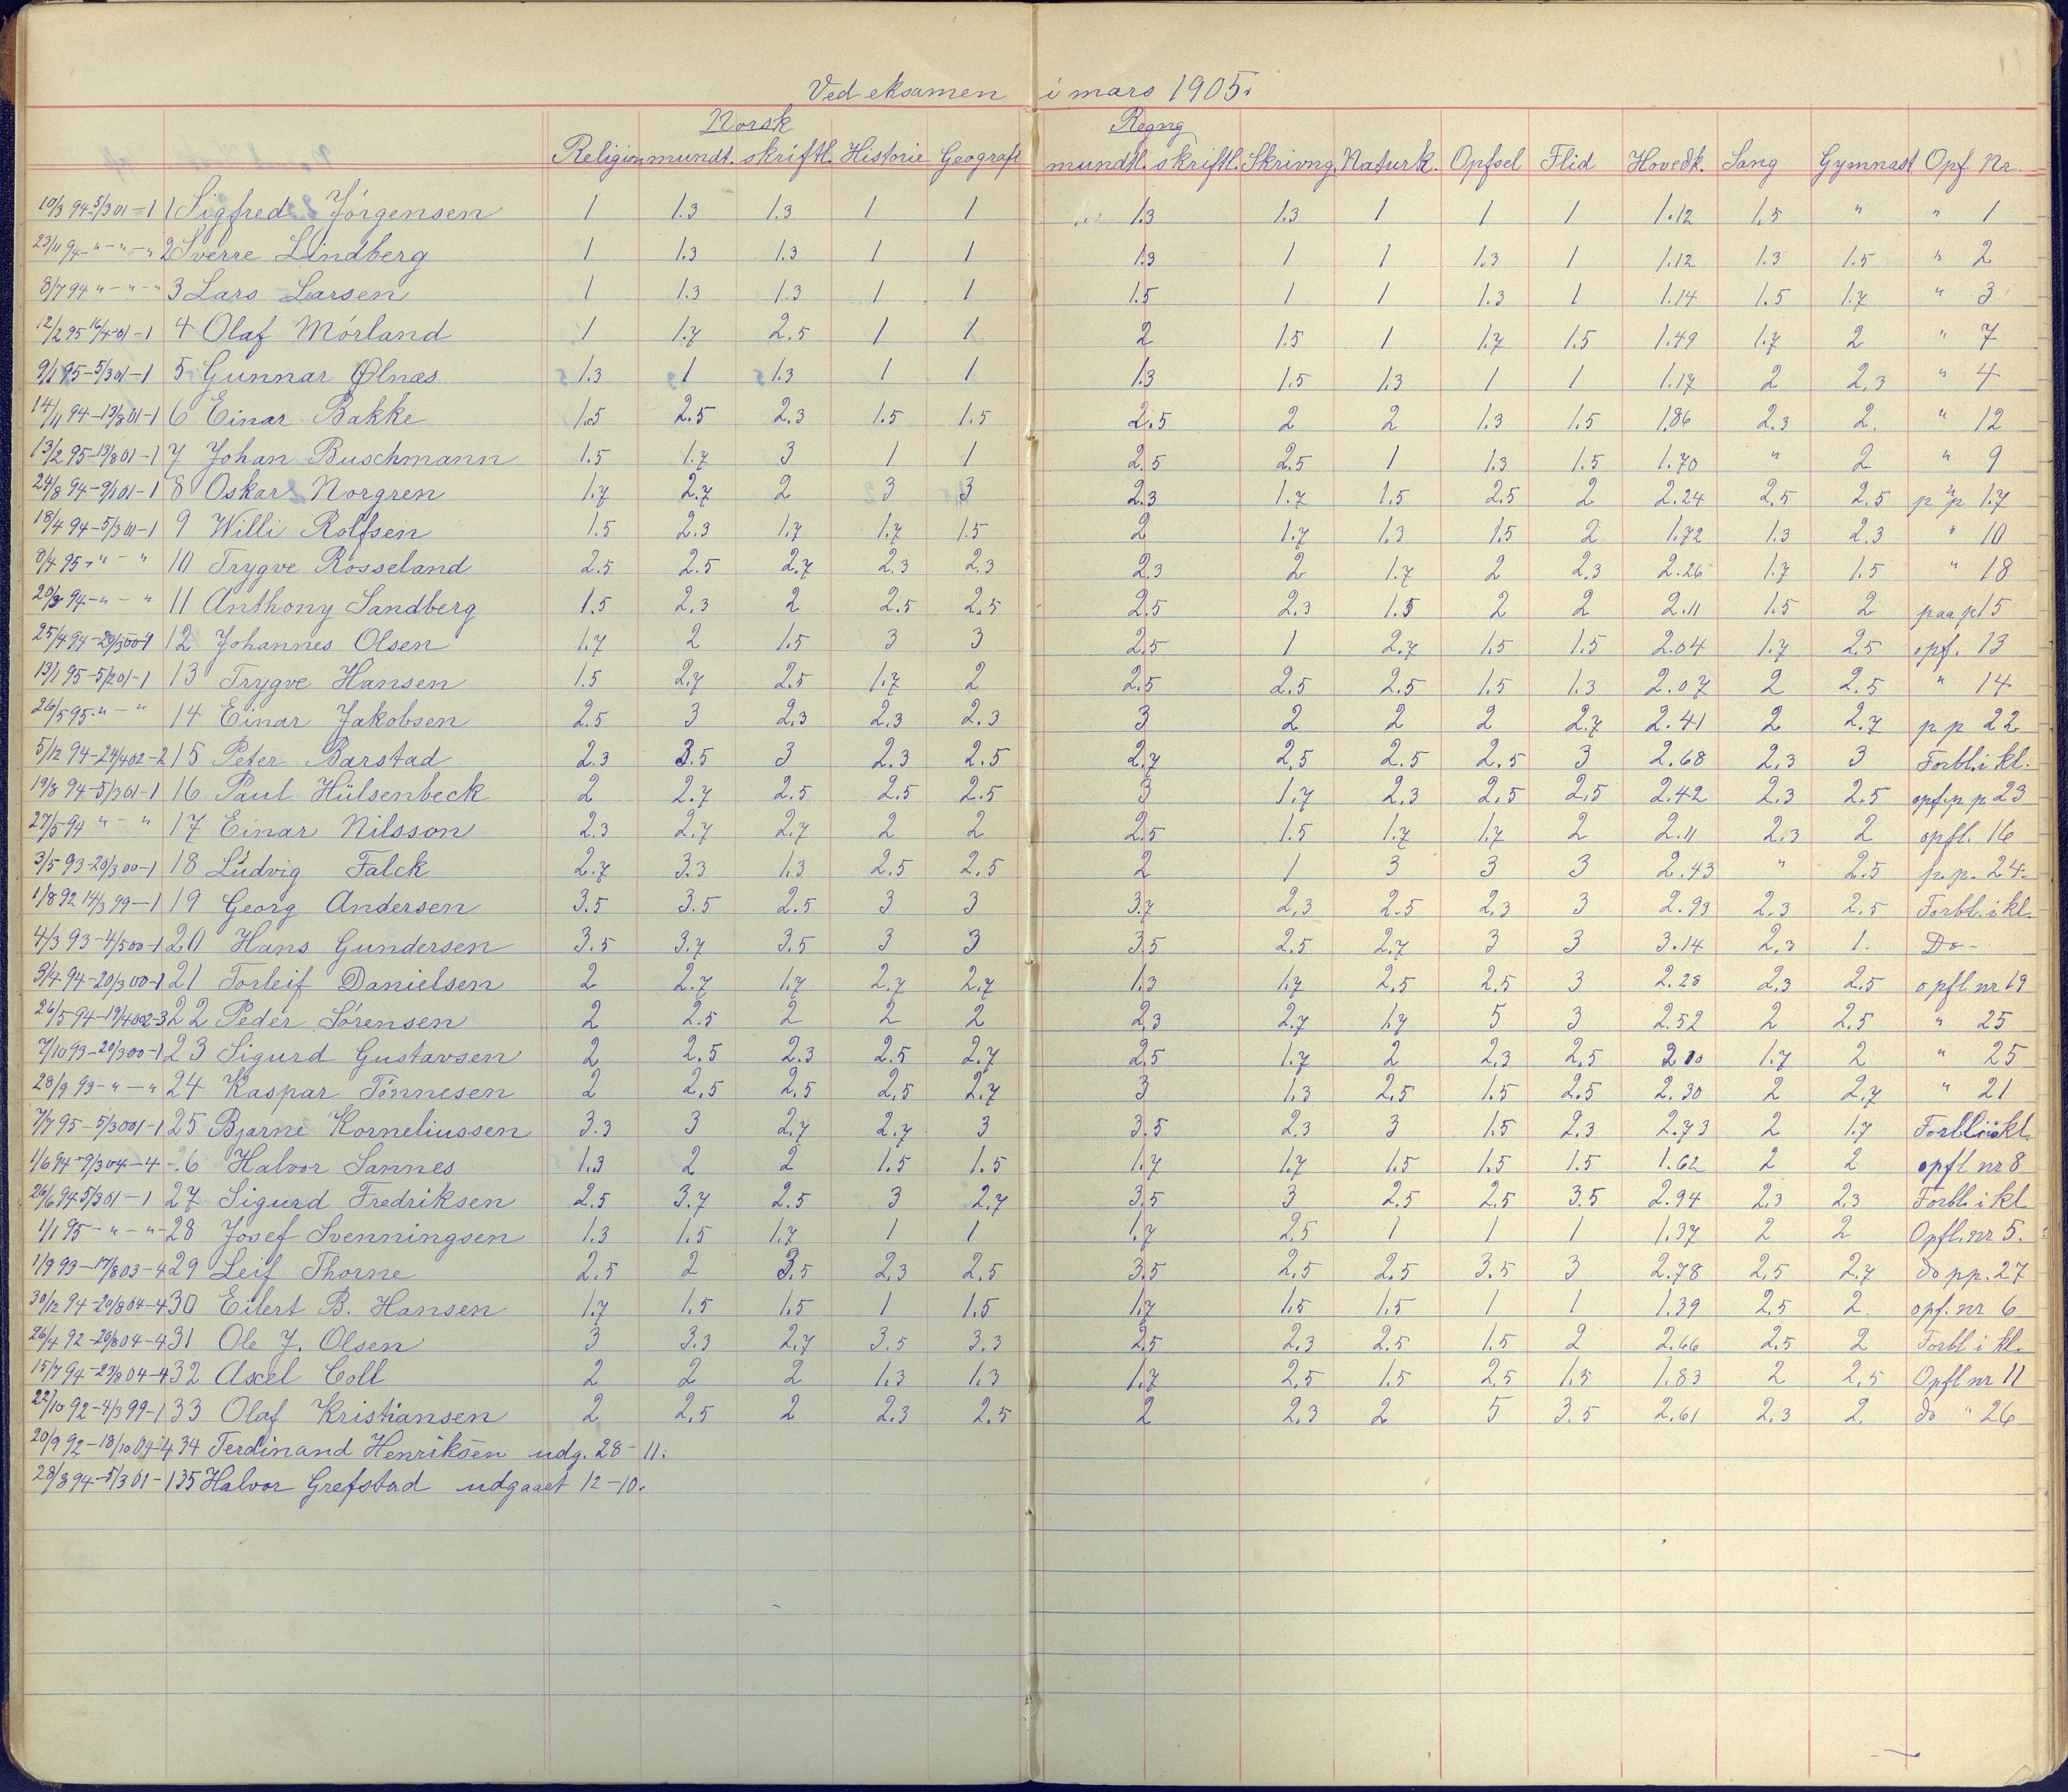 Ved eksamen i mars 1905.
Norsk Regng
Religion mundt. skriftl. Historie Geografi mundtl. skriftl. Skrivng. Naturk. Opfsel Flid Hovedk. Sang Gymnast Opf. Nr.
10/3 94-5/3 01-1 1 Sigfred Jörgensen 1 1.3 1.3 1 1 1.3 1.3 1 1 1 1.12 1.5 " " 1
23/11 94-"-"-" 2 Sverre Lindberg 1 1.3 1.3 1 1 1.3 1 1 1.3 1 1.12 1.3 1.5 " 2
8/7 94 "-"-" 3 Lars Larsen 1 1.3 1.3 1 1 1.5 1 1 1.3 1 1.14 1.5 1.7 " 3
12/2 95 16/4-01-1 4 Olaf Mórland 1 1.7 2.5 1 1 2 1.5 1 1.7 1.5 1.49 1.7 2 " 7
9/1 95-5/3 01-1 5 Gunnar Ølnæs 1.3 1 1.3 1 1 1.3 1.5 1.3 1 1 1.17 2 2.3 " 4
14/11 94-13/8 01-1 6 Einar Bakke 1.5 2.5 2.3 1.5 1.5 2.5 2 2 1.3 1.5 1.86 2.3 2. " 12
13/2 95-13/8 01-1 7 Johan Buschmann 1.5 1.7 3 1 1 2.5 2.5 1 1.3 1.5 1.70 " 2 " 9
24/8 94-9/1 01-1 8 Oskar Norgren 1.7 2.7 2 3 3 2.3 1.7 1.5 2.5 2 2.24 2.5 2.5 p " p 17
18/4 94-5/3 01-1 9 Willi Rolfsen 1.5 2.3 1.7 1.7 1.5 2 1.7 1.3 1.5 2 1.72 1.3 2.3 " 10
8/4 95-"-" 10 Trygve Rosseland 2.5 2.5 2.7 2.3 2.3 2.3 2 1.7 2 2.3 2.26 1.7 1.5 " 18
20/3 94-"-" 11 Anthony Sandberg 1.5 2.3 2 2.5 2.5 2.5 2.3 1.5 2 2 2.11 1.5 2 paa p 15
25/4 94-29/3 00-1 12 Johannes Olsen 1.7 2 1.5 3 3 2.5 1 2.7 1.5 1.5 2.04 1.7 2.5 opf. 13
13/1 95-5/2 01-1 13 Trygve Hansen 1.5 2.7 2.5 1.7 2 2.5 2.5 2.5 1.5 1.3 2.07 2 2.5 " 14
26/5 95-"-" 14 Einar Jakobsen 2.5 3 2.3 2.3 2.3 3 2 2 2 2.7 2.41 2 2.7 p p 22
5/12 94-24/4 02-2 15 Peter Barstad 2.3 3.5 3 2.3 2.5 2.7 2.5 2.5 2.5 3 2.68 2.3 3 Forbl. i kl.
19/8 94-5/3 01-1 16 Paul Hülsenbeck 2 2.7 2.5 2.5 2.5 3 1.7 2.3 2.5 2.5 2.42 2.3 2.5 opf. p p. 23
27/5 94 "-" 17 Einar Nilsson 2.3 2.7 2.7 2 2 2.5 1.5 1.7 1.7 2 2.11 2.3 2 opfl. 16
3/5 93-20/3 00-1 18 Ludvig Falck 2.7 3.3 1.3 2.5 2.5 2 1 3 3 3 2.43 " 2.5 p.p. 24.
1/8 92 14/3 99-1 19 Georg Andersen 3.5 3.5 2.5 3 3 3.7 2.3 2.5 2.3 3 2.93 2.3 2.5 Forbl. i kl.
4/3 93-4/5 00-1 20 Hans Gundersen 3.5 3.7 3.5 3 3 3.5 2.5 2.7 3 3 3.14 2.3 1. Do-
3/4 94-20/3 00-1 21 Torleif Danielsen 2 2.7 1.7 2.7 2.7 1.3 1.7 2.5 2.5 3 2.28 2.3 2.5 opfl nr 19
26/5 94-19/4 02-3 22 Peder Sórensen 2 2.5 2 2 2 2.3 2.7 1.7 5 3 2.52 2 2.5 " 25
7/10 93-20/3 00-1 23 Sigurd Gustavsen 2 2.5 2.3 2.5 2.7 2.5 1.7 2 2.3 2.5 2 10 1.7 2 " 25
28/9 93-"-" 24 Kaspar Tönnesen 2 2.5 2.5 2.5 2.7 3 1.3 2.5 1.5 2.5 2.30 2 2.7 " 21
7/7 95-5/3 001-1 25 Bjarne Korneliussen 3.3 3 2.7 2.7 3 3.5 2.3 3 1.5 2.3 2.73 2 1.7 Forbl i kl.
1/6 94-9/3 04-4 26 Halvor Sannes 1.3 2 2 1.5 1.5 1.7 1.7 1.5 1.5 1.5 1.62 2 2 opfl nr. 8
26/6 94 5/3 01-1 27 Sigurd Fredriksen 2.5 3.7 2.5 3 2.7 3.5 3 2.5 2.5 3.5 2.94 2.3 2.3 Forbl. i kl.
1/1 95-"-"- 28 Josef Svenningsen 1.3 1.5 1.7 1 1 1.7 2.5 1 1 1 1.37 2 2 Opfl. nr 5.
1/9 93-17/8 03-4 29 Leif Thorne 2.5 2 3.5 2.3 2.5 3.5 2.5 2.5 3.5 3 2.78 2.5 2.7 do pp. 27
30/12 94-20/8 04-4 30 Eilert B. Hansen 1.7 1.5 1.5 1 1.5 1.7 1.5 1.5 1 1 1.39 2.5 2. opf. nr 6
26/4 92-20/8 04-4 31 Ole J. Olsen 3 3.3 2.7 3.5 3.3 2.5 2.3 2.5 1.5 2 2.66 2.5 2 Forbl i kl.
15/7 94-23/8 04-4 32 Axel Coll 2 2 2 1.3 1.3 1.7 2.5 1.5 2.5 1.5 1.83 2 2.5 Opfl nr 11
22/10 92-4/3 99-1 33 Olaf Kristiansen 2 2.5 2 2.3 2.5 2 2.3 2 5 3.5 2.61 2.3 2. do " 26
20/9 92-18/10 04-4 34 Ferdinand Henriksen udg. 28-11.
28/8 94-5/3 01-1 35 Halvor Grefstad udgaaet 12-10.